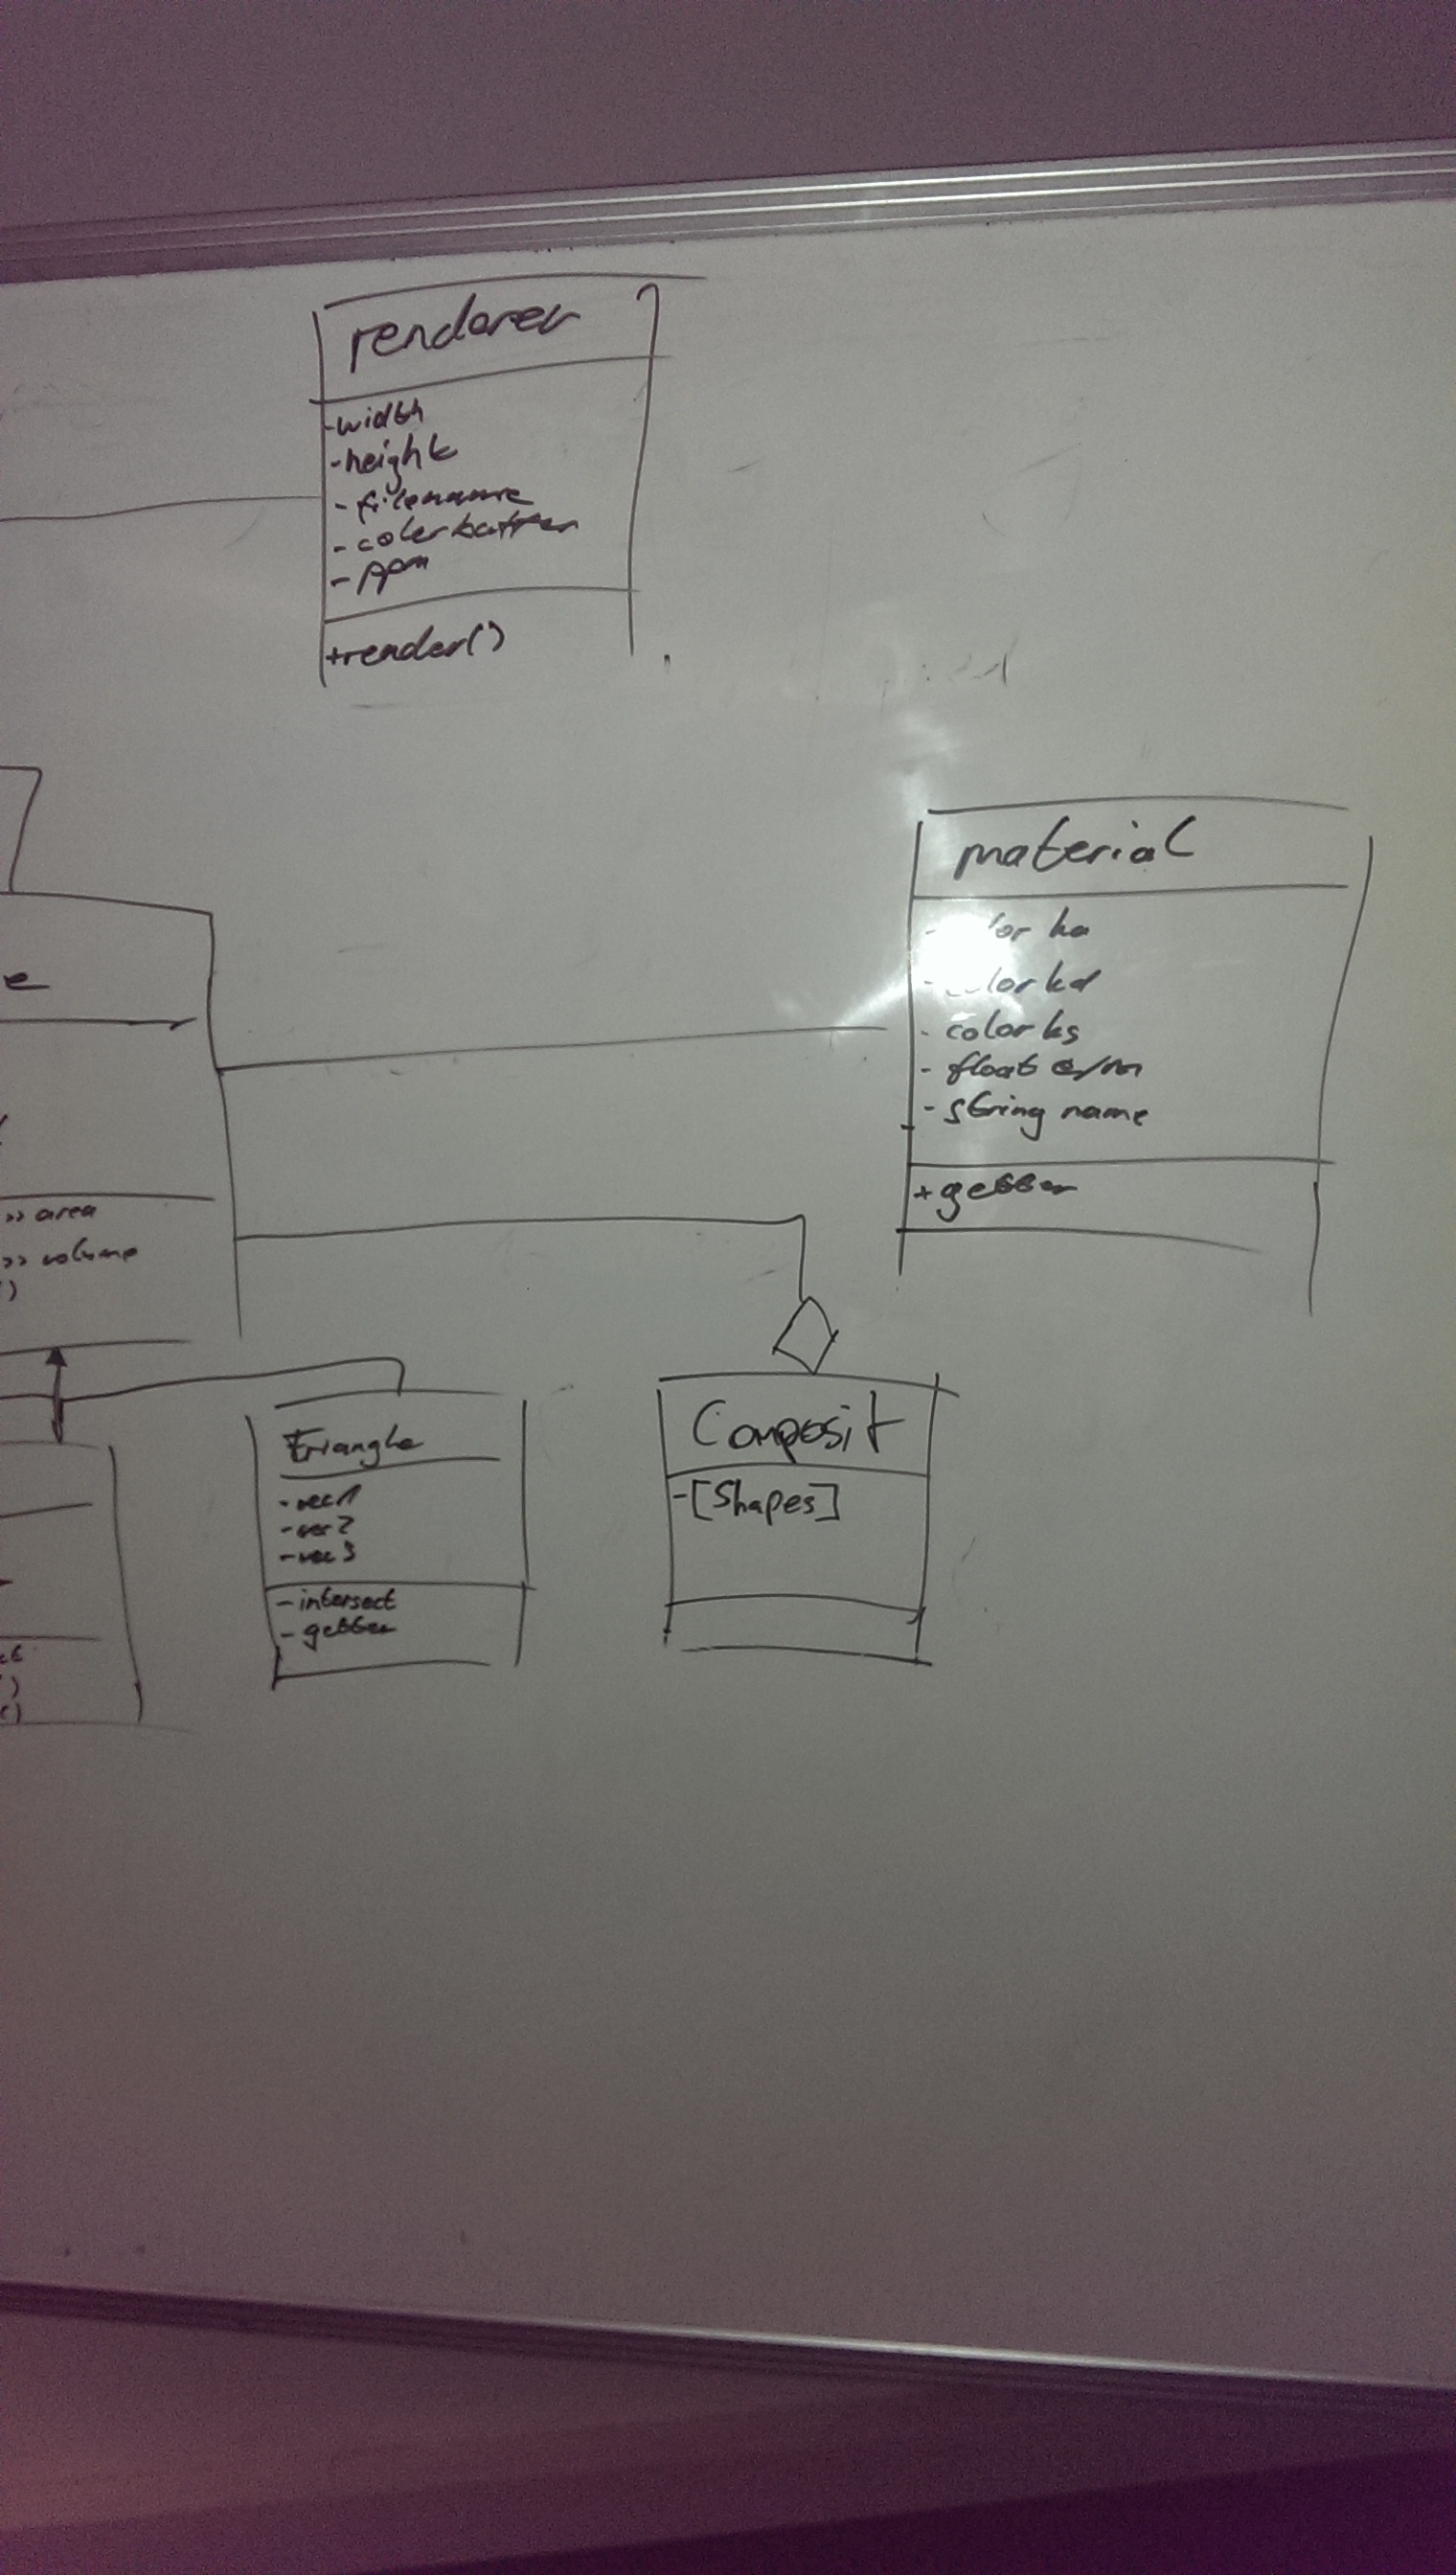 renderer
-width
-height
- filename
- colorbuffer
- ppm
+render()
material
ka
kd
- color ks
- float
- string name
+ getter
e
>> area
>> volume
()
Triangle
- vec1
- vec2
- vec3
- intersect
- getter
Composit
-[Shapes]
)
()